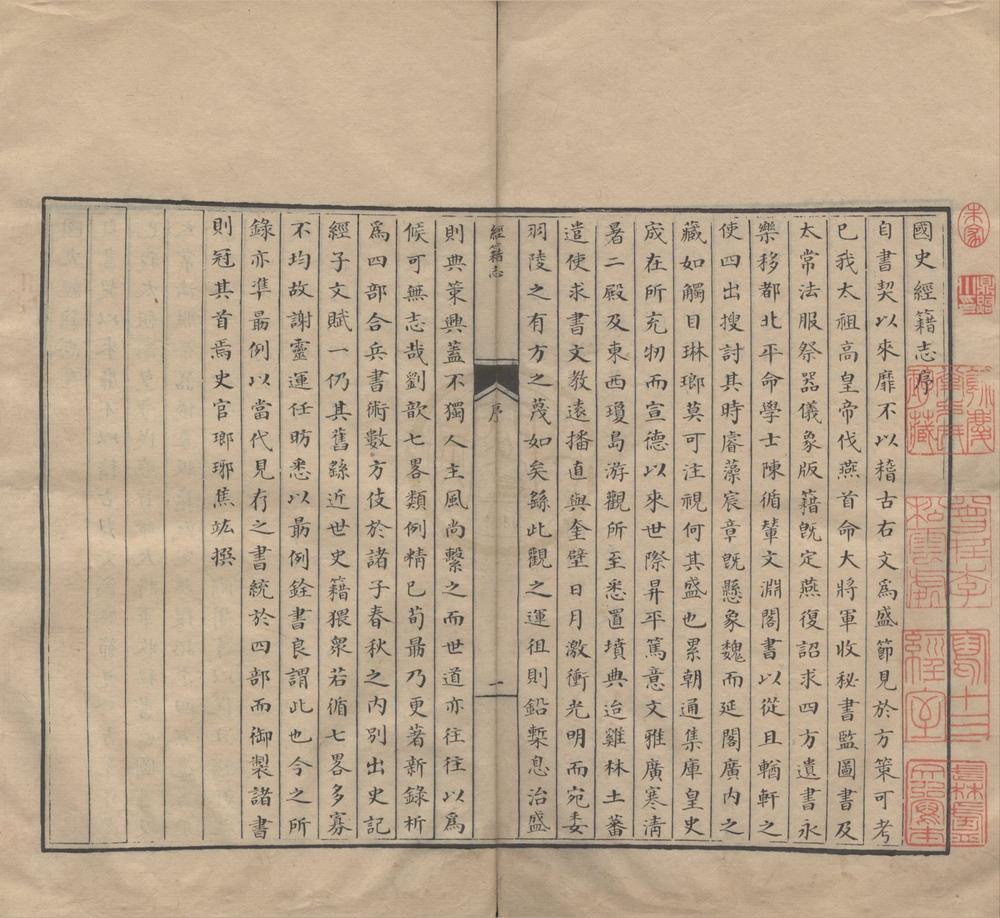 國史經籍志序
自書契以來靡不以稽古右文爲盛節見於方策可考
已我太祖高皇帝伐燕首命大將軍收秘書監圖書及
太常法服祭器儀象版籍旣定燕復詔求四方遺書永
樂移都北平命學士陳循輦文淵閣書以從且輶軒之
使四出搜討其時睿藻宸章旣懸象魏而延閣廣内之
藏如觸目琳瑯莫可注視何其盛也累朝通集庫皇史
宬在所充牣而宣德以來世際昇平篤意文雅廣寒淸
暑二殿及東西瓊島游觀所至悉置墳典迨雞林土蕃
遣使求書文教遠播直與奎壁日月激衝光明而宛委
羽陵之有方之蔑如矣繇此觀之運祖則鉛槧息治盛
經籍志
序
一
則典策興蓋不獨人主風尚繫之而世道亦往往以爲
候可無志哉劉歆七畧類例精已荀勗乃更著新錄析
爲四部合兵書術數方伎於諸子春秋之内別出史記
經子文賦一仍其舊繇近世史籍猥衆若循七畧多寡
不均故謝靈運任昉悉以勗例銓書良謂此也今之所
錄亦準勗例以當代見存之書統於四部而御製諸書
則冠其首焉史官瑯琊焦竑撰